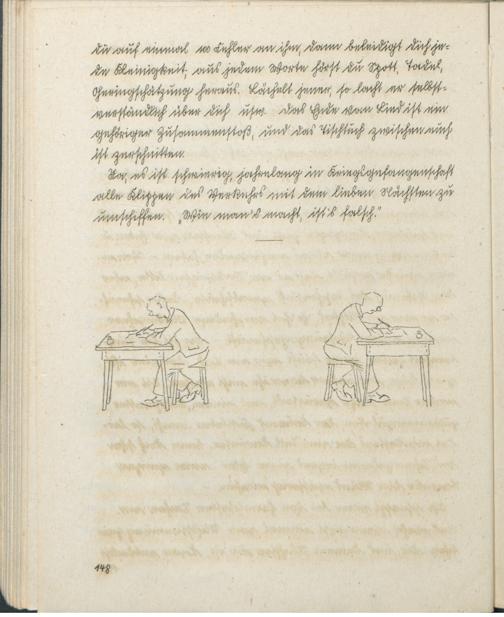 du auf einmal 100 Fehler an ihm, dann beleidigt dich je-
de Kleinigkeit, aus jedem Worte hörst du Spott, Tadel,
Geringschätzung heraus. Lächelt jener, so lacht er selbst-
verständlich über dich usw. Das Ende vom Lied ist ein
gehöriger Zusammenstoß, und das Tischtuch zwischen euch
ist zerschnitten.
Ja, es ist schwierig, jahrelang in Kriegsgefangenschaft
alle Klippen des Verkehrs mit dem lieben Nächsten zu
umschiffen. „Wie man's macht, ist's falsch."
148